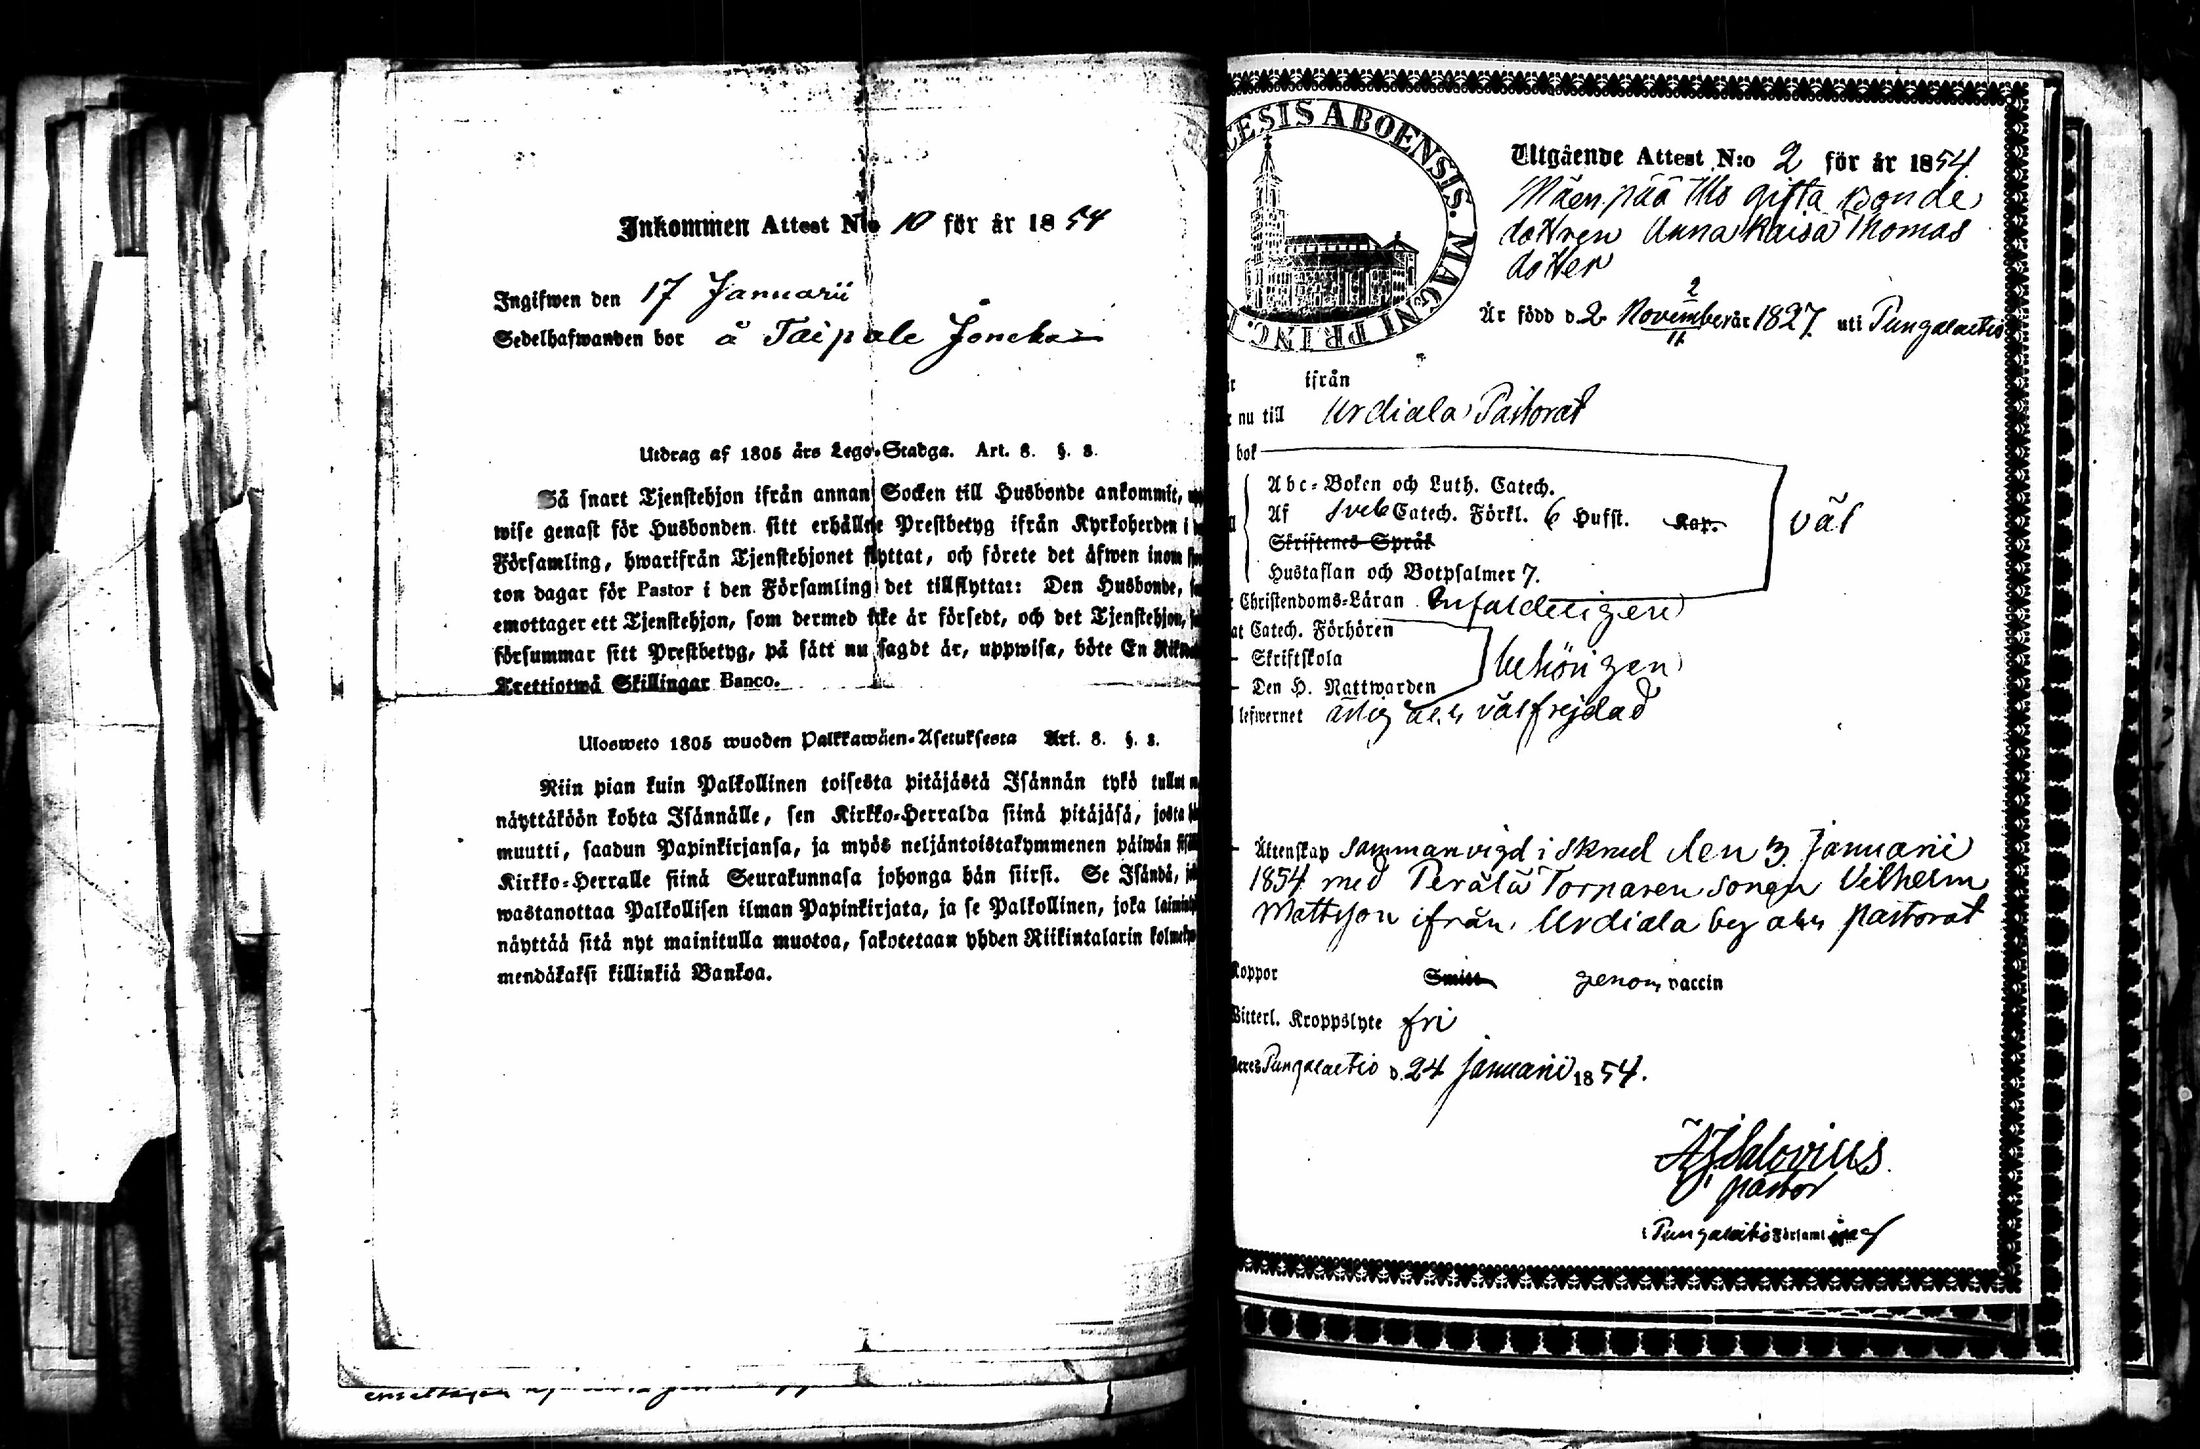 Inkommen Attest N:o 10 för år 1854
Ingifwen den 17 Januarii
Sedelhafwanden bor å Taipale
Utdrag af 1805 års Lego-Stadga. Art. 8. §. 8.
Så snart Tjenstehjon ifrån annan Socken till Husbonde ankommit,
wise genast för Husbonden sitt erhållne Prestbetyg ifrån Kyrkoherden i
Församling, hwarifrån Tjenstehjonet flyttat, och förete det äfwen inom
ton dagar för Pastor i den Församling det tillflyttat: Den Husbonde,
emottager ett Tjenstehjon, som dermed icke är försedt, och det Tjenstehjon,
försummar sitt Prestbetyg, på sätt nu sagdt är, uppwisa, böte En
Trettiotwå Skillingar Banco.
Ulosweto 1805 wuoden Palkkawäen-Asetuksesta Art. 8. §. 8.
Niin pian kuin Palkollinen toisesta pitäjästä Isännän tykö tullut
näyttäköön kohta Isännälle, sen Kirkko-Herralda siinä pitäjäsä, josta
muutti, saadun Papinkirjansa, ja myös neljäntoistakymmenen päiwän
Kirkko-Herralle siinä Seurakunnasa johonga hän siirsi. Se Isändä,
wastanottaa Palkollisen ilman Papinkirjata, ja se Palkollinen, joka
näyttää sitä nyt mainitulla muotoa, sakotetaan yhden Riikintalarin
mendäkaksi killinkiä Bankoa.
CESIS ABOENSIS. MAGNI PRINC.
Utgående Attest N:o 2 för år 1854
Mäenpää gifta Bonde
dottren Anna Kaisa Thomas
dotter
2
Är född d. 2 November år 1827 uti Pungalaitio
11
ifrån
nu till Urdiala Pastorat
bok
Abc-Boken och Luth. Catech.
Af Sveb Catech. Förkl. 6 Hufst. Kap. väl
Skriftenes Språk
Hustaflan och Botpsalmer 7.
Christendoms-Läran Enfaldeligen
Catech. Förhören
Skriftskola behörigen
Den H. Nattwarden
lefwernet ärlig och välfrejdad
Äktenskap sammanvigd i Skrud den 3 Januarii
1854 med Perälä Torparen sonen Vilhelm
Mattsson ifrån Urdiala by och Pastorat
Koppor Smitt genom vaccin
Witterl. Kroppslyte fri
Pungalaitio d. 24 Januarii 1854.
Salovius
Pastor
i Pungalaitio Församling